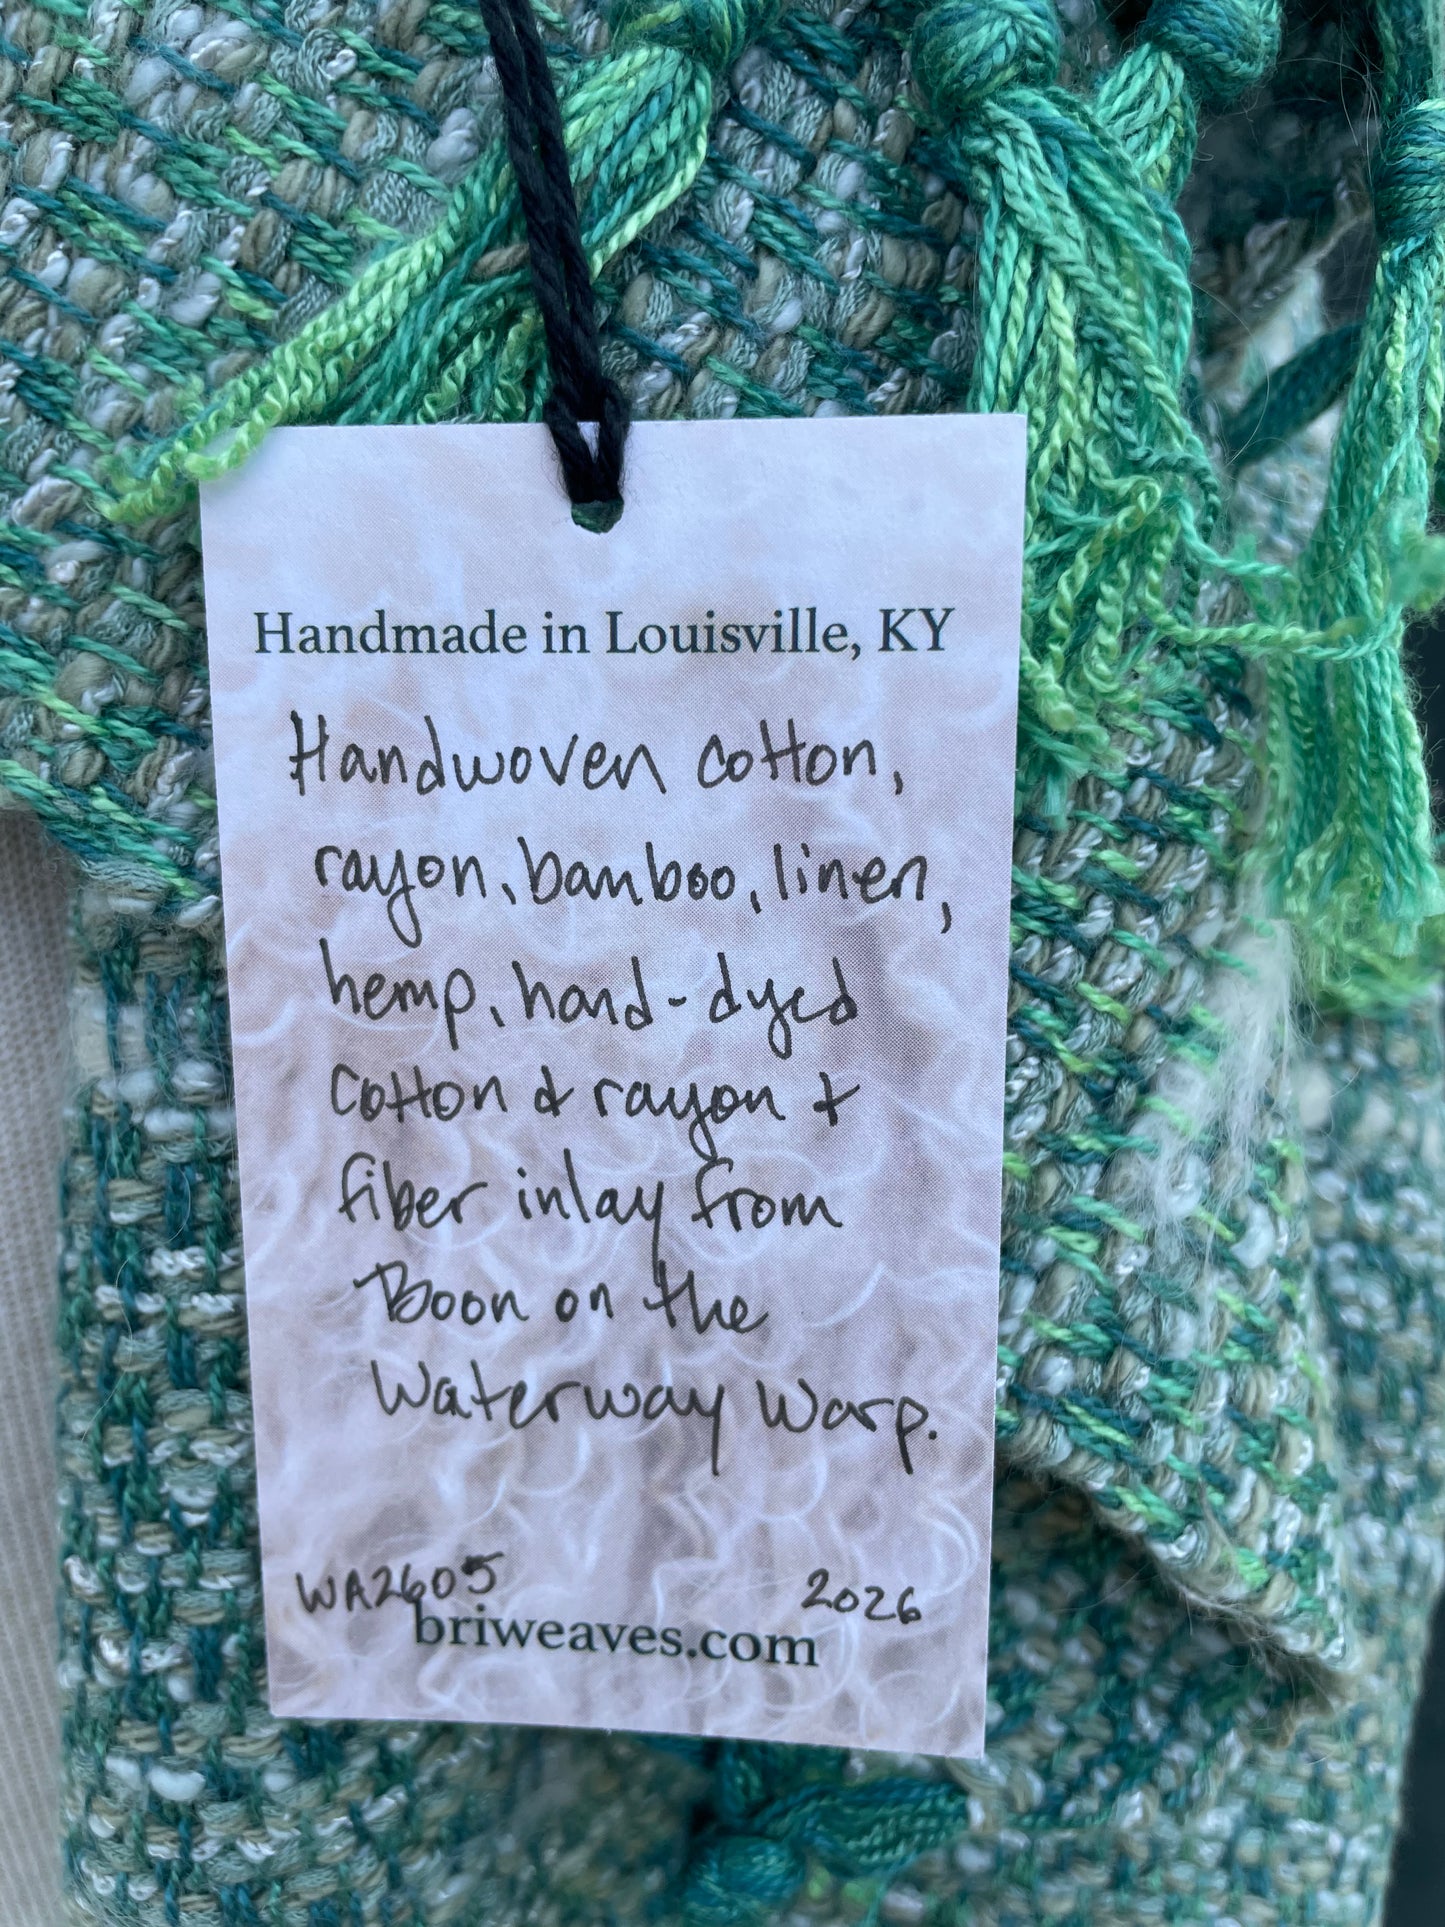 Handmade in Louisville, KY
Handwoven cotton,
rayon, bamboo, linen,
hemp, hand-dyed
cotton & rayon +
fiber inlay from
Boon on the
Waterway Warp.
WA2605 2026
briweaves.com